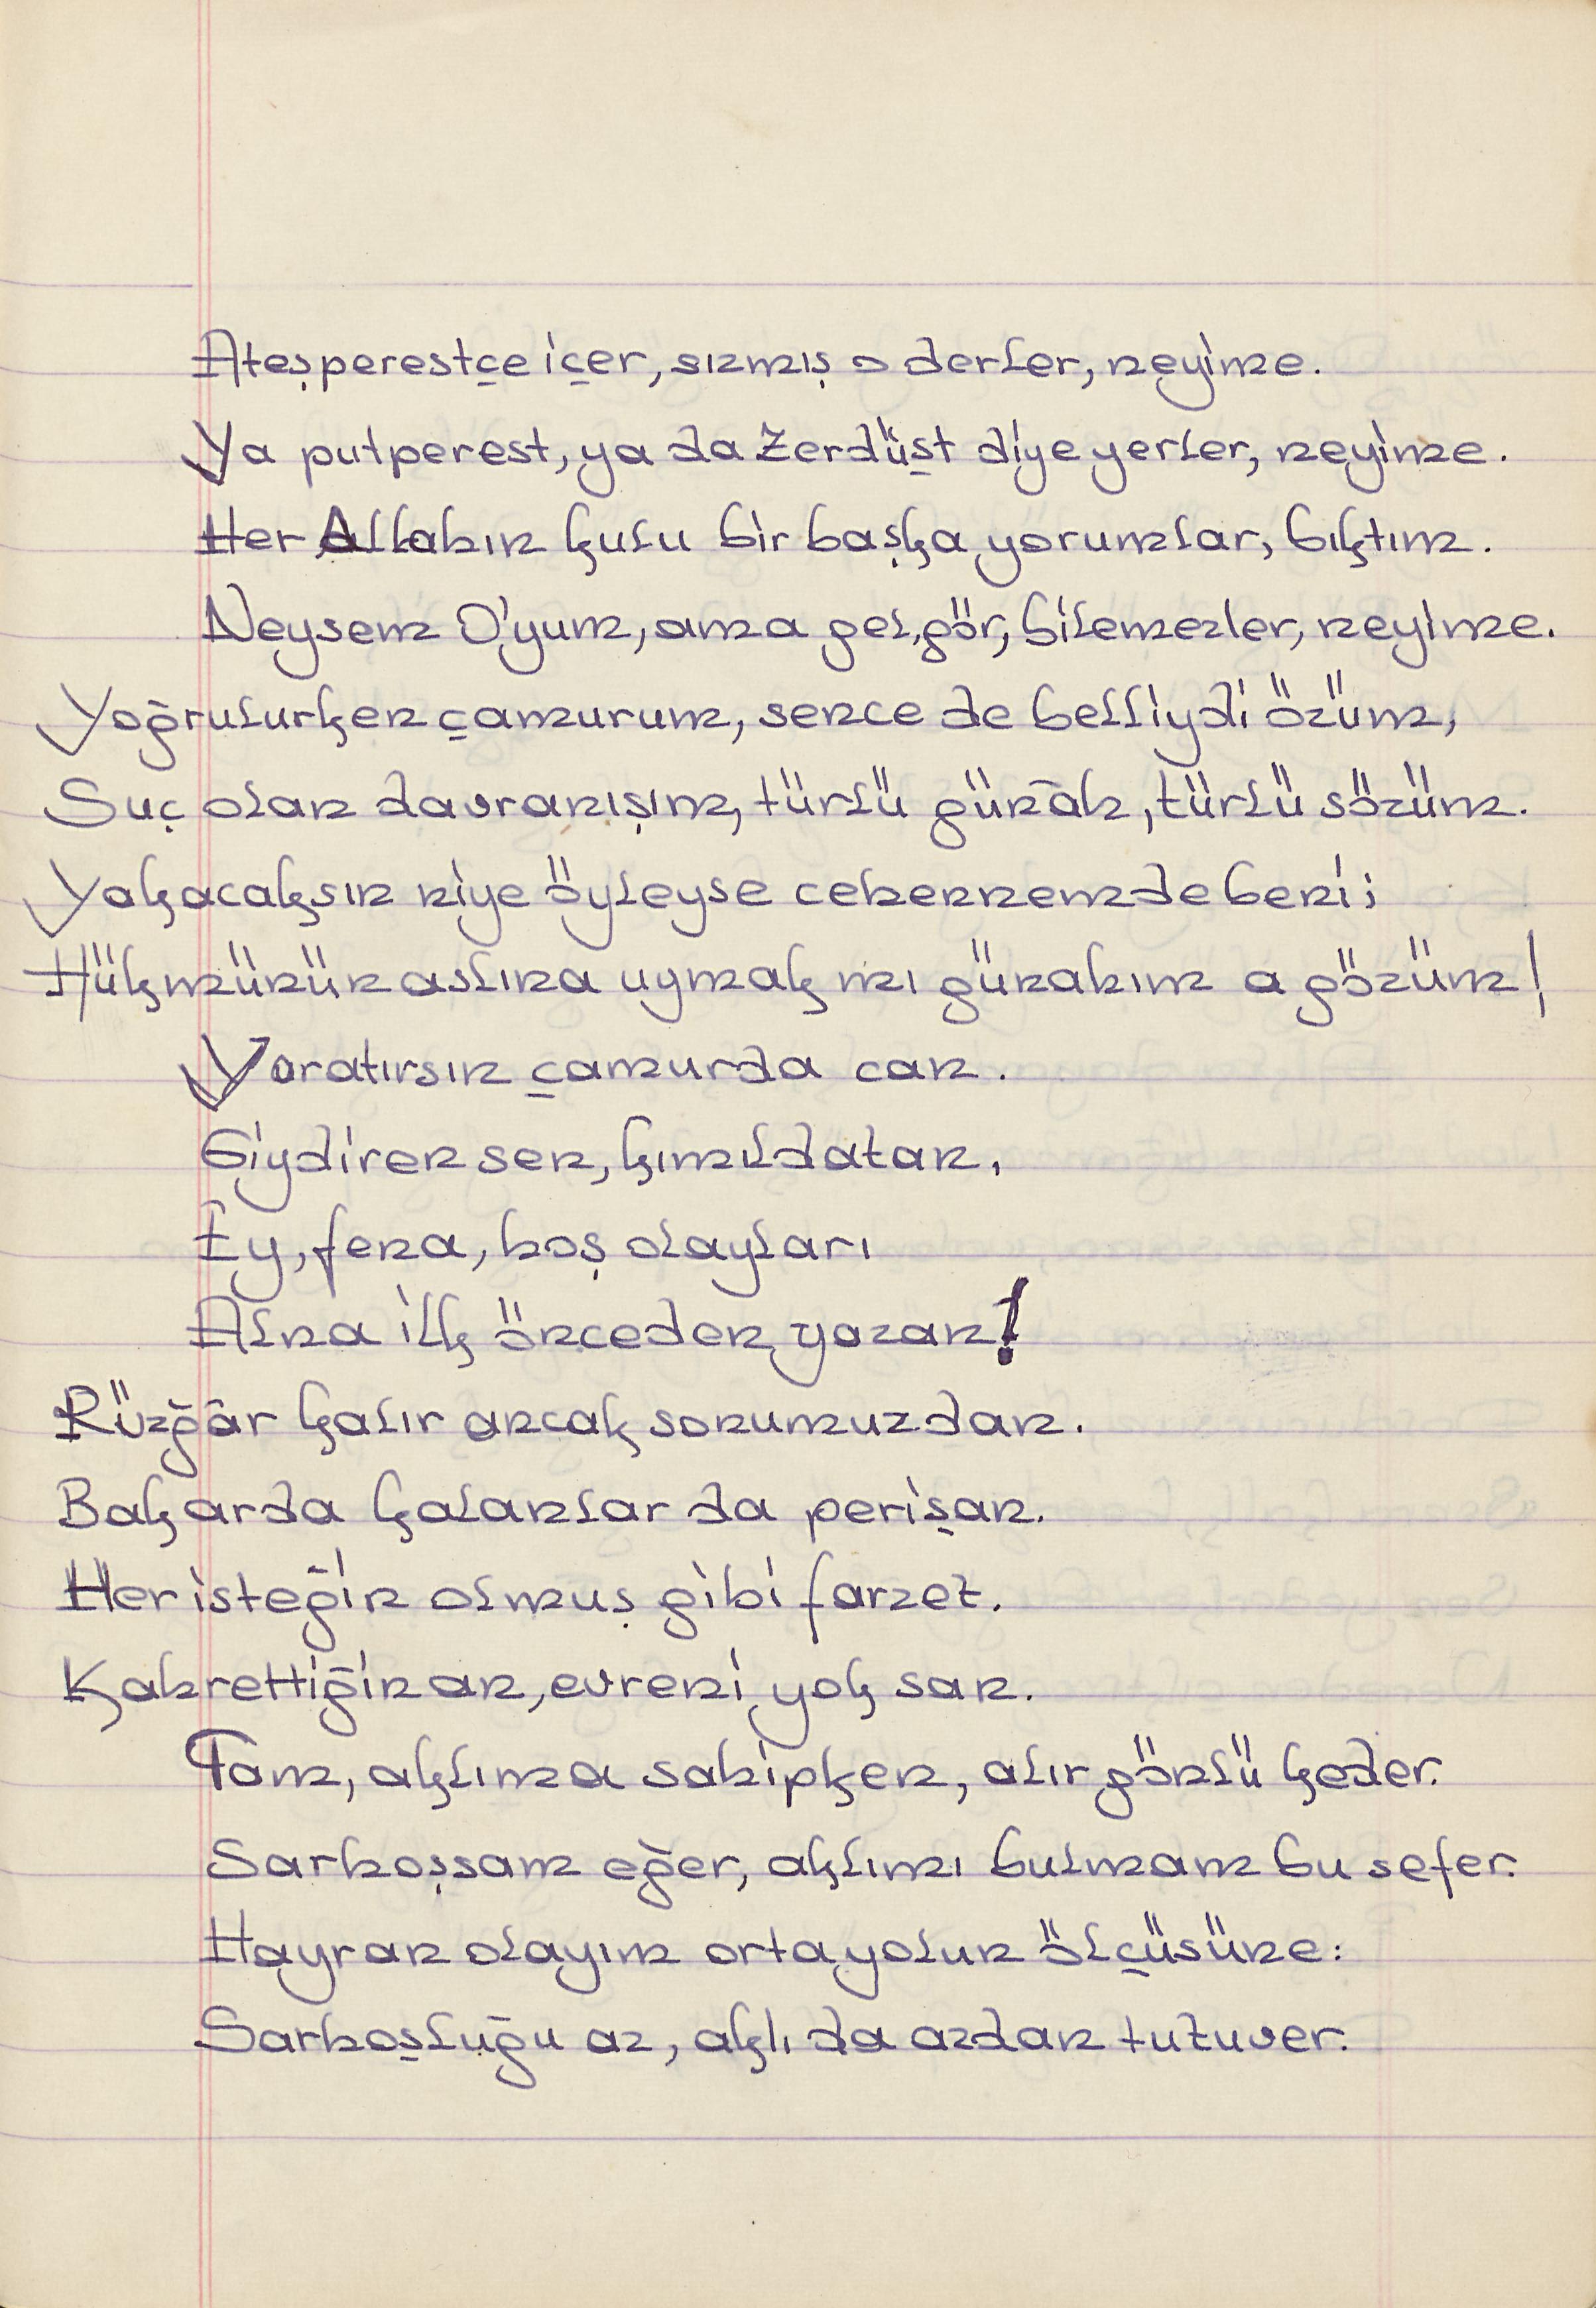 Ateşperestçe içer, sızmış o derler, neyime.
Ya putperest, ya da Zerdüşt diye yerler, neyime.
Her Allahın kulu bir başka yorumlar, bıktım.
Neysem O'yum, ama gel, gör, bilemezler, neyime.
Yoğrulurken çamurum, sence de belliydi özüm,
Suç olan davranışım, türlü günâh, türlü sözüm.
Yakacaksın niye öyleyse cehennemde beni;
Hükmünün aslına uymak mı günahım a gözüm!
Yaratırsın çamurda can.
Giydiren sen, kımıldatan,
Ey, fena, hoş olayları
Alna ilk önceden yazan!
Rüzğâr kalır ancak sonumuzdan.
Bakarda kalanlar da perişan.
Her isteğin olmuş gibi farzet.
Kahrettiğin an, evreni yok san.
Tam, aklıma sahipken, alır gönlü keder.
Sarhoşsam eğer, aklımı bulmam bu sefer.
Hayran olayım orta yolun ölçüsüne:
Sarhoşluğu az, aklı da azdan tutuver.